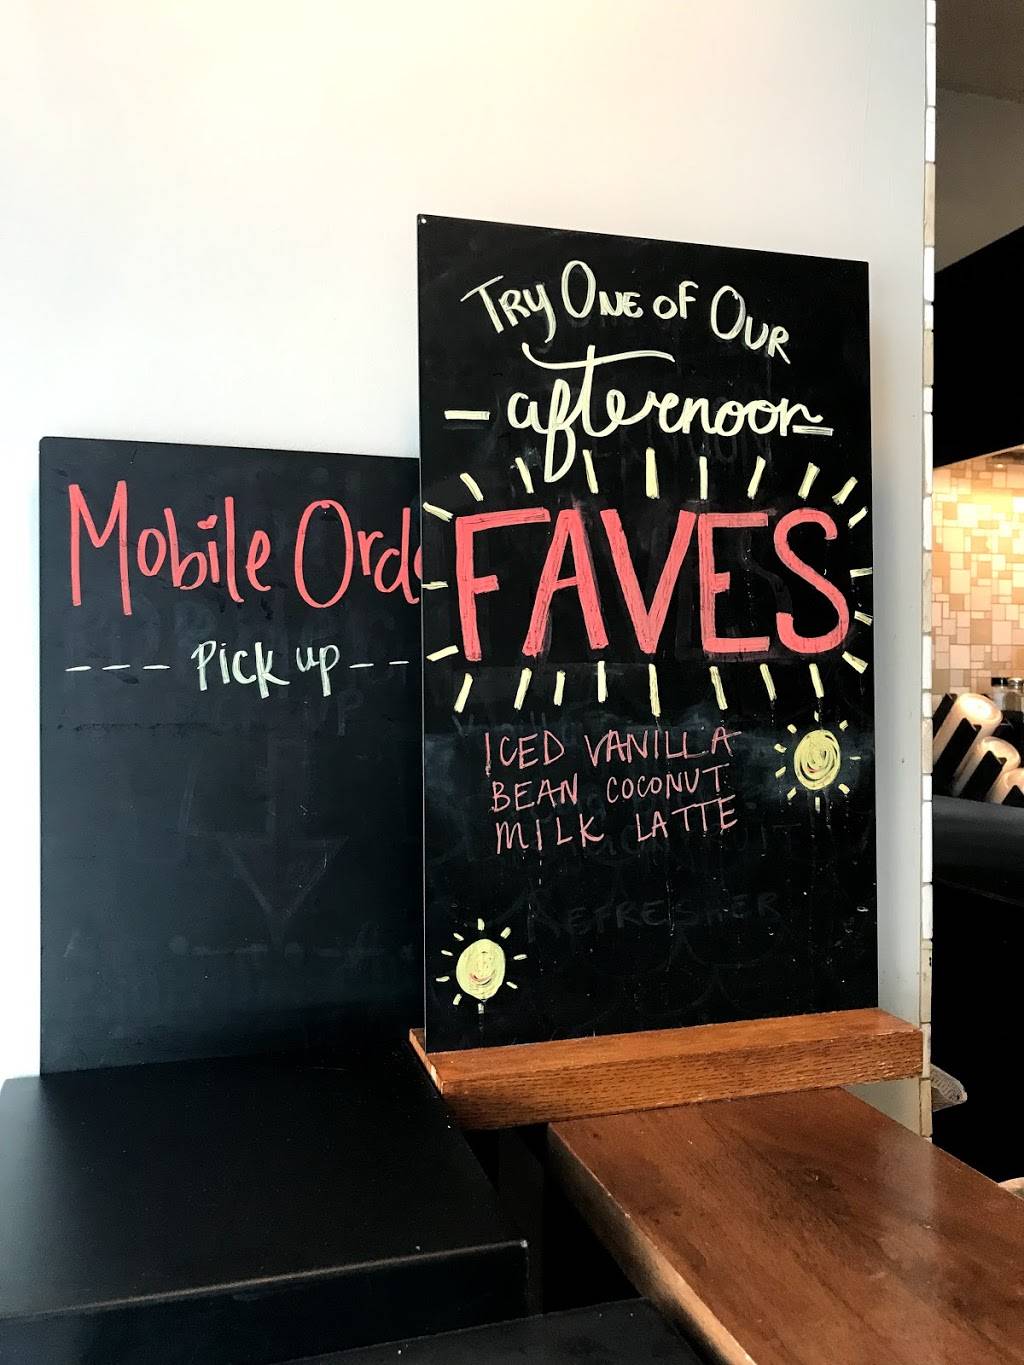 Mobile Orde
--- Pick up --
TRY ONE OF OUR
- afternoon -
FAVES
ICED VANILLA
BEAN COCONUT
MILK LATTE
REFRESHER